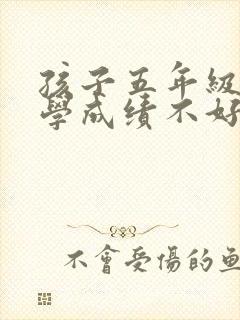 孩子五年級
學成績不好
不會受傷的魚